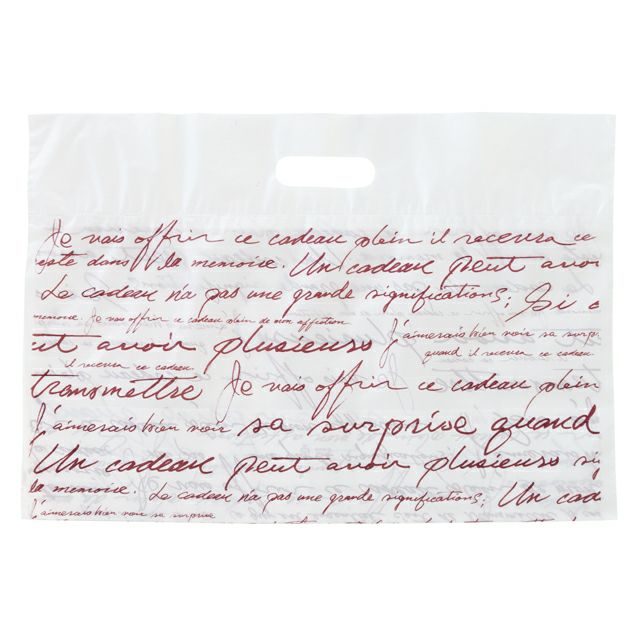 Je vais offrir ce cadeau plein il recevra ce
reste dans la memoire. Un cadeau peut avoi
Le cadeau n'a pas une grande significations; Si c
memoire. Je vais offrir ce cadeau plein de mon affection
J'aimerais bien voir sa surpr
ut avoir plusieurs
quand il recevra ce cadeau.
il recevra ce cadeau.
transmettre Je vais offrir ce cadeau plein
J'aimerais bien voir sa surprise quand
Un cadeau peut avoir plusieurs si
la memoire. Le cadeau n'a pas une grande significations; Un cad
J'aimerais bien voir sa surprise